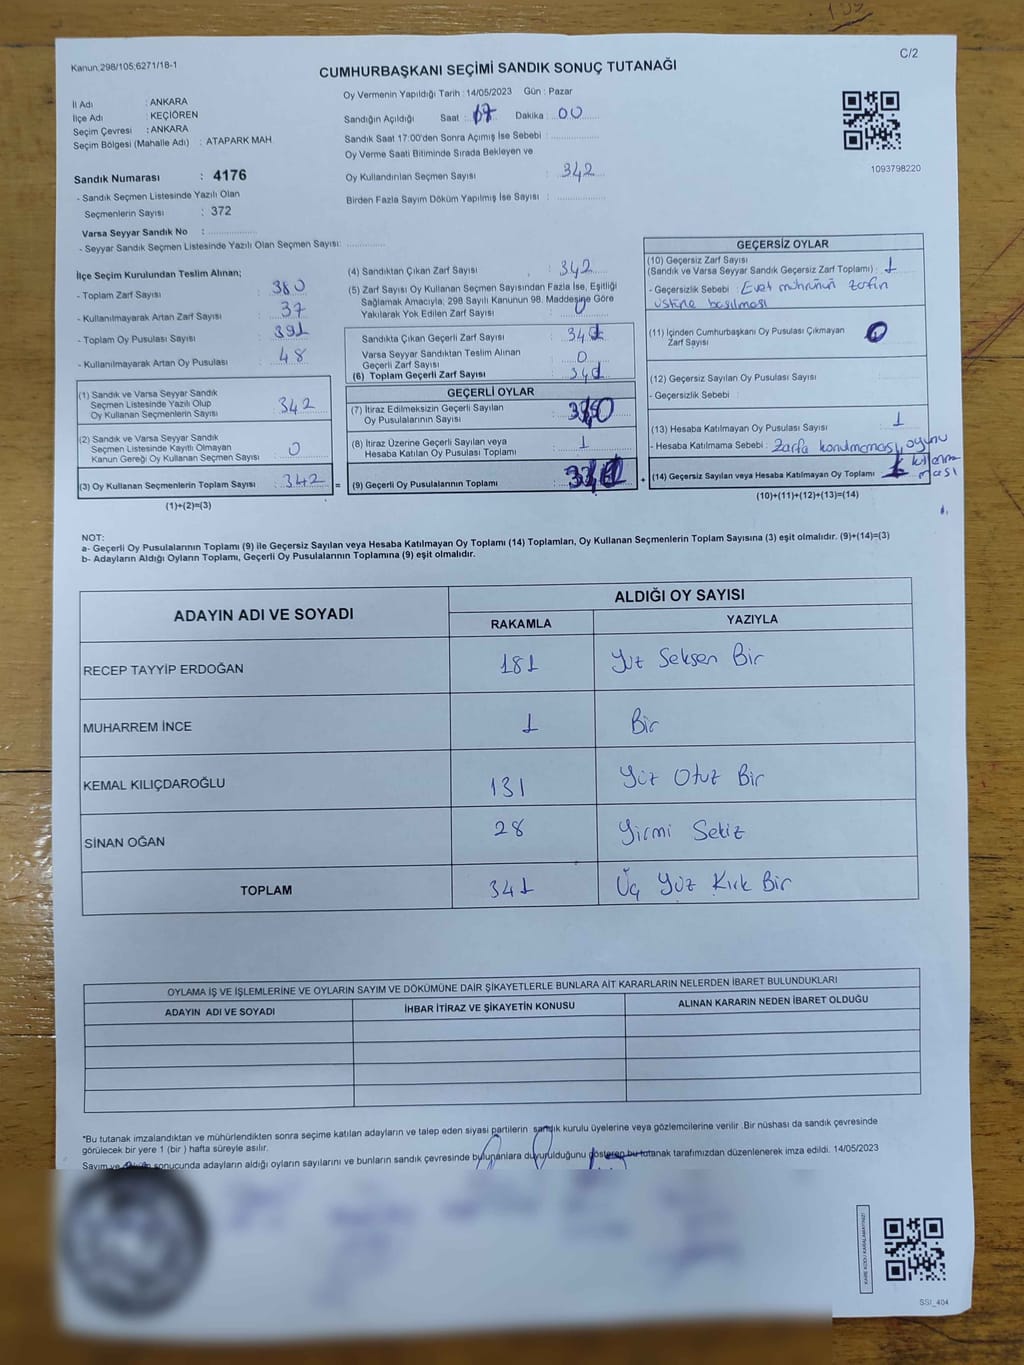 C/2
Kanun;298/105;6271/18-1
CUMHURBAŞKANI SEÇİMİ SANDIK SONUÇ TUTANAĞI
İl Adı : ANKARA
İlçe Adı : KEÇİÖREN
Seçim Çevresi : ANKARA
Seçim Bölgesi (Mahalle Adı) : ATAPARK MAH
Sandık Numarası : 4176
- Sandık Seçmen Listesinde Yazılı Olan
Seçmenlerin Sayısı : 372
Varsa Seyyar Sandık No :
- Seyyar Sandık Seçmen Listesinde Yazılı Olan Seçmen Sayısı:
Oy Vermenin Yapıldığı Tarih : 14/05/2023 Gün : Pazar
Sandığın Açıldığı Saat : 17 Dakika : 00
Sandık Saat 17:00'den Sonra Açımış İse Sebebi :
Oy Verme Saati Bitiminde Sırada Bekleyen ve
Oy Kullandırılan Seçmen Sayısı : 342
Birden Fazla Sayım Döküm Yapılmış İse Sayısı :
1093798220
İlçe Seçim Kurulundan Teslim Alınan;
- Toplam Zarf Sayısı : 380
- Kullanılmayarak Artan Zarf Sayısı : 37
- Toplam Oy Pusulası Sayısı : 391
- Kullanılmayarak Artan Oy Pusulası : 48
(1) Sandık ve Varsa Seyyar Sandık
Seçmen Listesinde Yazılı Olup
Oy Kullanan Seçmenlerin Sayısı : 342
(2) Sandık ve Varsa Seyyar Sandık
Seçmen Listesinde Kayıtlı Olmayan
Kanun Gereği Oy Kullanan Seçmen Sayısı : 0
(3) Oy Kullanan Seçmenlerin Toplam Sayısı : 342 =
(1)+(2)=(3)
(4) Sandıktan Çıkan Zarf Sayısı : 342
(5) Zarf Sayısı Oy Kullanan Seçmen Sayısından Fazla İse, Eşitliği
Sağlamak Amacıyla; 298 Sayılı Kanunun 98. Maddesine Göre
Yakılarak Yok Edilen Zarf Sayısı : 0
Sandıkta Çıkan Geçerli Zarf Sayısı : 341
Varsa Seyyar Sandıktan Teslim Alınan
Geçerli Zarf Sayısı : 0
(6) Toplam Geçerli Zarf Sayısı : 341
GEÇERLİ OYLAR
(7) İtiraz Edilmeksizin Geçerli Sayılan
Oy Pusulalarının Sayısı :
(8) İtiraz Üzerine Geçerli Sayılan veya
Hesaba Katılan Oy Pusulası Toplamı : 1
(9) Geçerli Oy Pusulalarının Toplamı : +
GEÇERSİZ OYLAR
(10) Geçersiz Zarf Sayısı
(Sandık ve Varsa Seyyar Sandık Geçersiz Zarf Toplamı) : 1
- Geçersizlik Sebebi : Evet mührünün zarfın
üstüne basılması
(11) İçinden Cumhurbaşkanı Oy Pusulası Çıkmayan
Zarf Sayısı : 0
(12) Geçersiz Sayılan Oy Pusulası Sayısı :
- Geçersizlik Sebebi :
(13) Hesaba Katılmayan Oy Pusulası Sayısı : 1
- Hesaba Katılmama Sebebi : Zarfa konulmaması, oyunu
(14) Geçersiz Sayılan veya Hesaba Katılmayan Oy Toplamı : 1
(10)+(11)+(12)+(13)=(14)
NOT:
a- Geçerli Oy Pusulalarının Toplamı (9) ile Geçersiz Sayılan veya Hesaba Katılmayan Oy Toplamı (14) Toplamları, Oy Kullanan Seçmenlerin Toplam Sayısına (3) eşit olmalıdır. (9)+(14)=(3)
b- Adayların Aldığı Oyların Toplamı, Geçerli Oy Pusulalarının Toplamına (9) eşit olmalıdır.
ADAYIN ADI VE SOYADI ALDIĞI OY SAYISI
RAKAMLA YAZIYLA
RECEP TAYYİP ERDOĞAN 181 Yüz Seksen Bir
MUHARREM İNCE 1 Bir
KEMAL KILIÇDAROĞLU 131 Yüz Otuz Bir
SİNAN OĞAN 28 Yirmi Sekiz
TOPLAM 341 Üç Yüz Kırk Bir
OYLAMA İŞ VE İŞLEMLERİNE VE OYLARIN SAYIM VE DÖKÜMÜNE DAİR ŞİKAYETLERLE BUNLARA AİT KARARLARIN NELERDEN İBARET BULUNDUKLARI
ADAYIN ADI VE SOYADI İHBAR İTİRAZ VE ŞİKAYETİN KONUSU ALINAN KARARIN NEDEN İBARET OLDUĞU
*Bu tutanak imzalandıktan ve mühürlendikten sonra seçime katılan adayların ve talep eden siyasi partilerin sandık kurulu üyelerine veya gözlemcilerine verilir .Bir nüshası da sandık çevresinde
görülecek bir yere 1 (bir ) hafta süreyle asılır.
Sayım ve döküm sonucunda adayların aldığı oyların sayılarını ve bunların sandık çevresinde bulunanlara duyurulduğunu gösteren bu tutanak tarafımızdan düzenlenerek imza edildi. 14/05/2023
KARE KODU KARALAMAYINIZ!
SSI_404